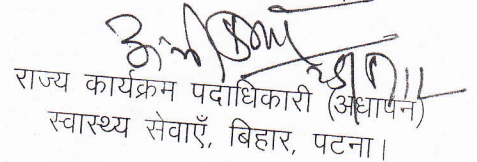 राज्य कार्यक्रम पदाधिकारी (अंधापन)
स्वास्थ्य सेवाएँ, बिहार, पटना।